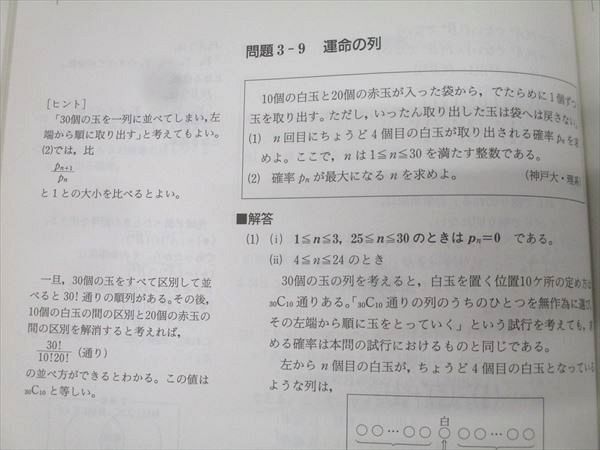 問題3-9 運命の列
[ヒント]
「30個の玉を一列に並べてしまい,左
端から順に取り出す」と考えてもよい。
(2)では,比
pn+1
pn
と1との大小を比べるとよい。
10個の白玉と20個の赤玉が入った袋から,でたらめに1個ずつ
玉を取り出す。ただし,いったん取り出した玉は袋へは戻さない。
(1) n回目にちょうど4個目の白玉が取り出される確率pnを求
めよ。ここで,nは1≦n≦30を満たす整数である。
(2) 確率pnが最大になるnを求めよ。 (神戸大・理系)
■解答
(1) (i) 1≦n≦3,25≦n≦30のときはpn=0 である。
(ii) 4≦n≦24のとき
30個の玉の列を考えると,白玉を置く位置10ケ所の定め方は
30C10通りある。「30C10通りの列のうちのひとつを無作為に選び
その左端から順に玉をとっていく」という試行を考えても,求
める確率は本問の試行におけるものと同じである。
左からn個目の白玉が,ちょうど4個目の白玉となっている
ような列は,
白
○○…○○○○○…○○
一旦,30個の玉をすべて区別して並
べると30!通りの順列がある。その後,
10個の白玉の間の区別と20個の赤玉の
間の区別を解消すると考えれば,
30!
10!20! (通り)
の並べ方ができるとわかる。この値は
30C10と等しい。